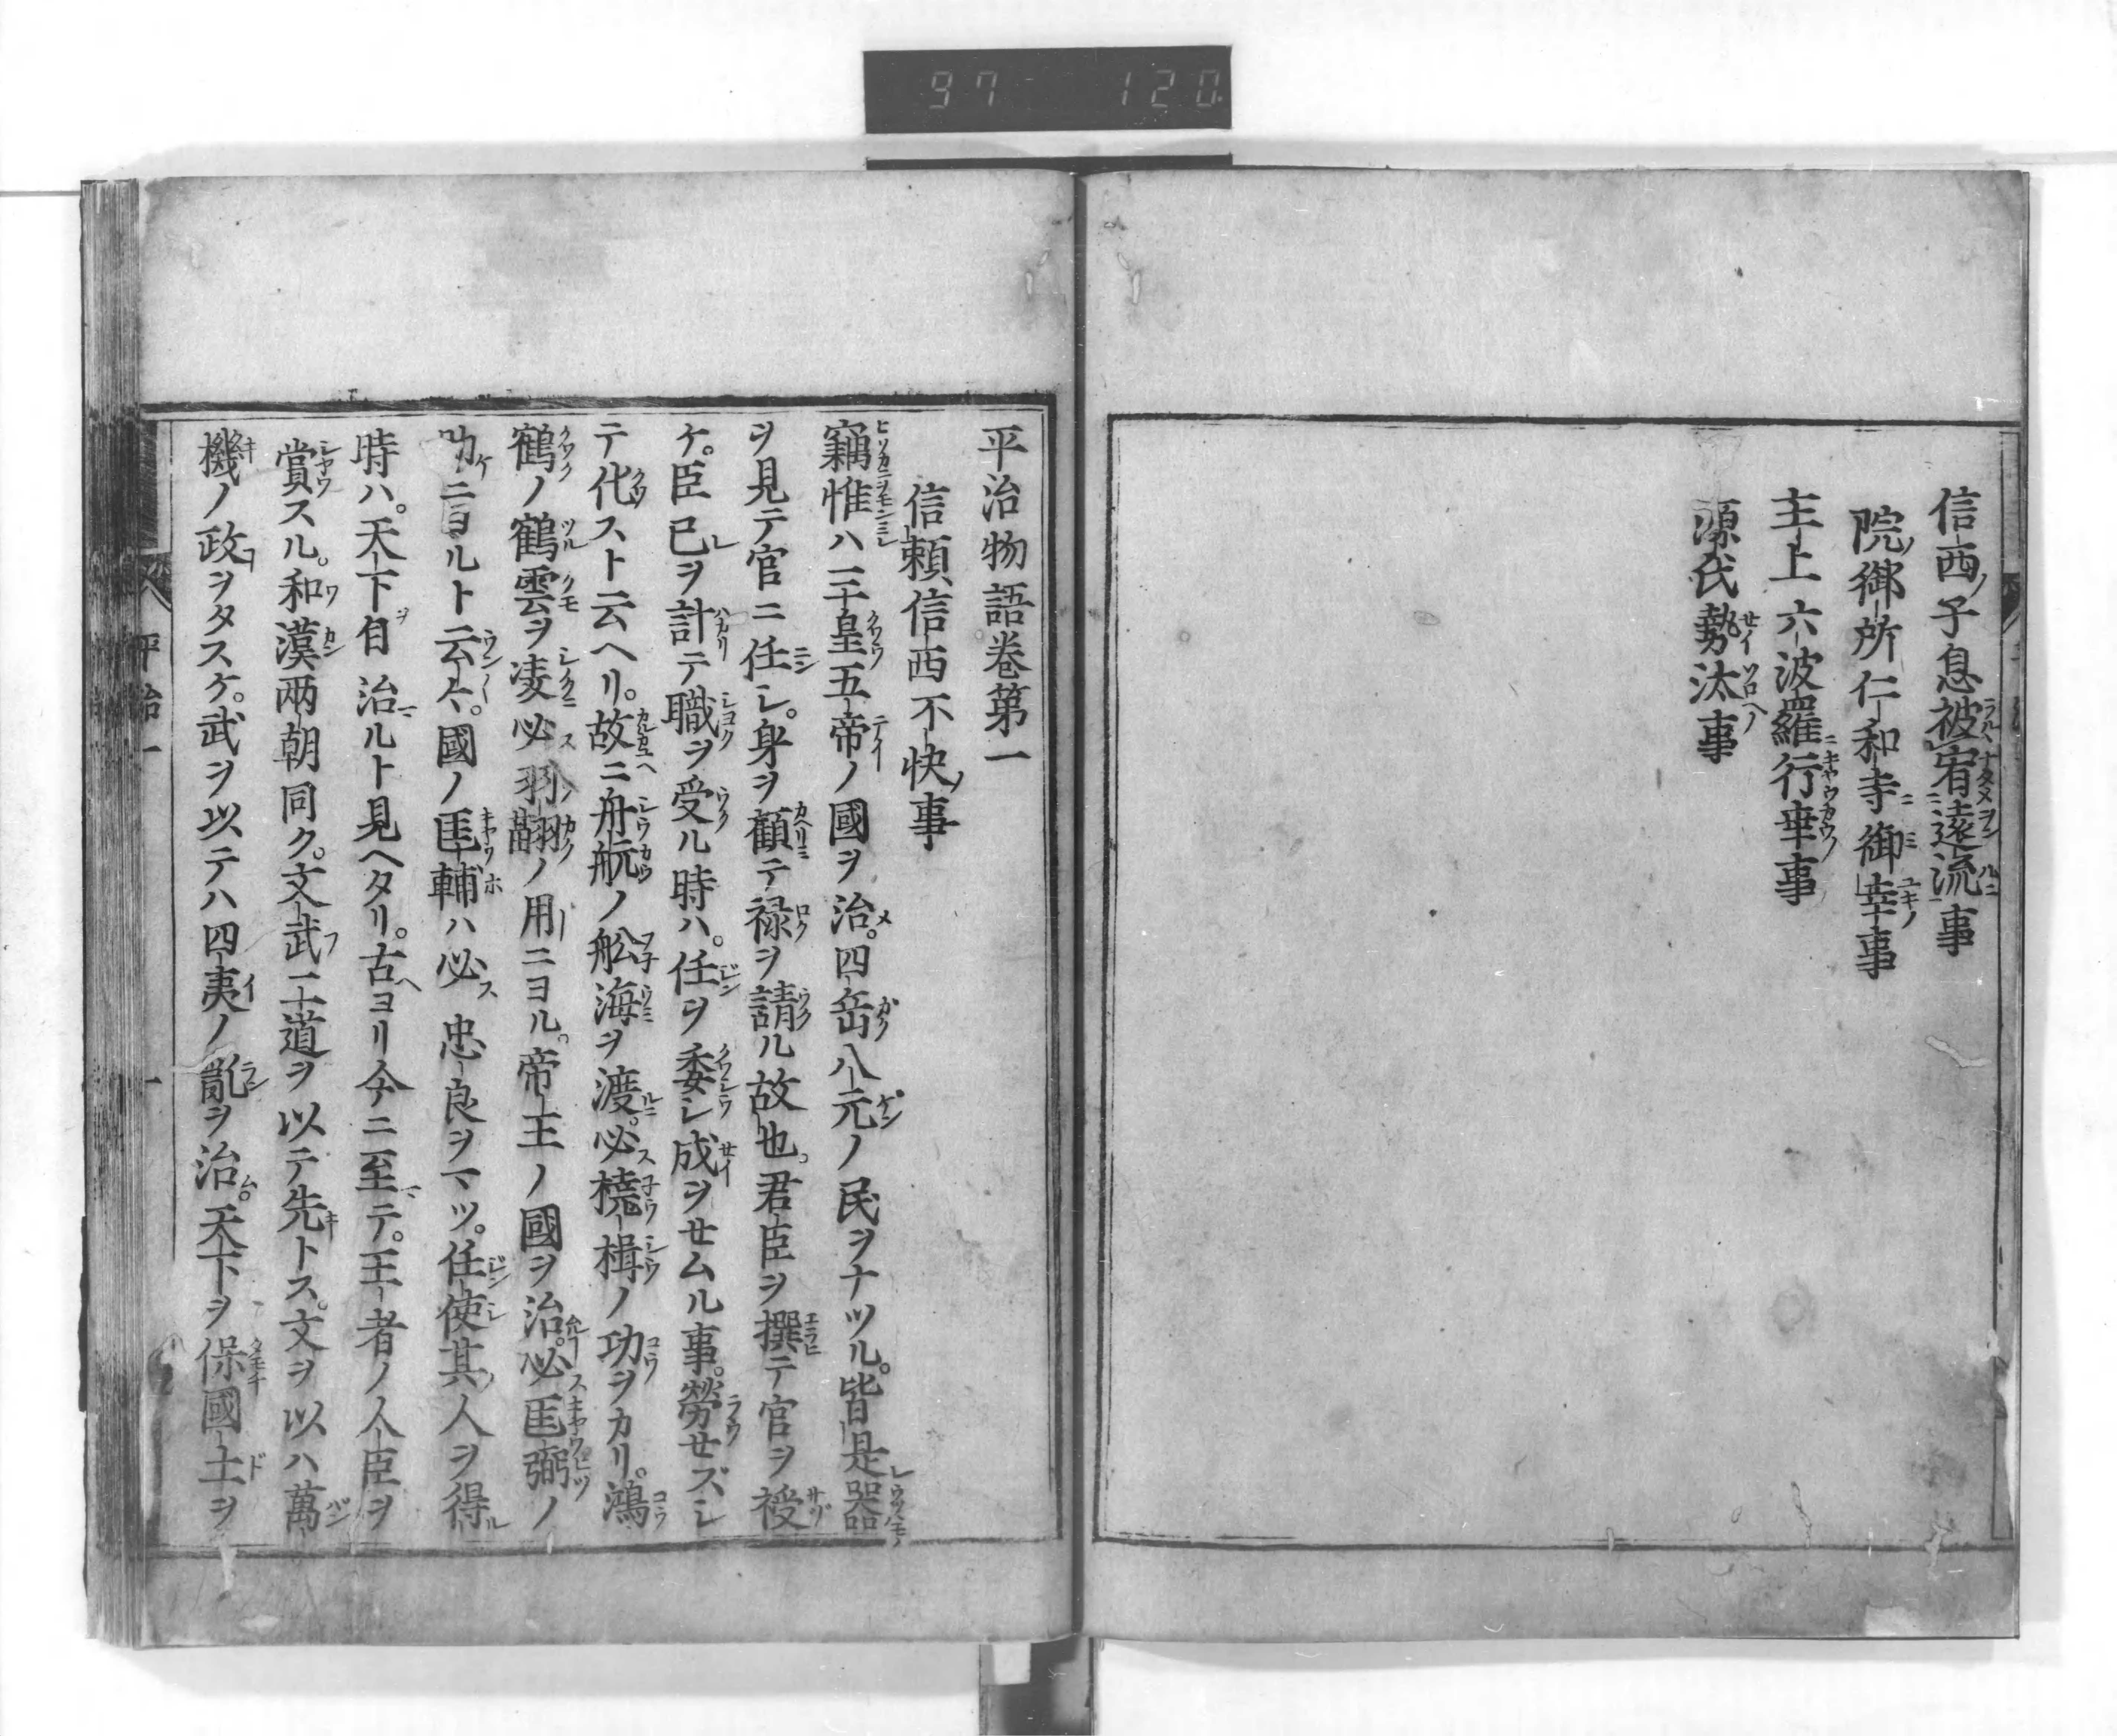 97 120
信西ノ子息被宥遠流事
院ノ御所仁和寺御幸ノ事
主上六波羅行幸ノ事
源氏勢汰ヘノ事
平治物語卷第一
信頼信西不快ノ事
竊惟ハ三皇五帝ノ國ヲ治メ。四岳八元ノ民ヲナツル。皆是レ器
ヲ見テ官ニ任シ。身ヲ顧テ禄ヲ請ル故也。君臣ヲ撰テ官ヲ授
ケ。臣已レヲ計テ職ヲ受ル時ハ。任ヲ委シ成ヲせムル事。勞せズシ
テ代スト云ヘリ。故ニ舟航ノ舩海ヲ渡ル。必ス橈楫ノ功ヲカリ。鴻
鶴ノ鶴雲ヲ凌必ス羽翮ノ用ニヨル。帝王ノ國ヲ治。必ス匡弼ノ
助ケニヨルト云云。國ノ匡輔ハ必ス忠良ヲマツ。任使其ノ人ヲ得ル
時ハ。天下自治ルト見ヘタリ。古ヘヨリ今ニ至テ。王者ノ人臣ヲ
賞スル。和漢兩朝同ク。文武二道ヲ以テ先トス。文ヲ以ハ萬
機ノ政ヲタスケ。武ヲ以テハ四夷ノ亂ヲ治ム。天下ヲ保國土ヲ
平治一
一